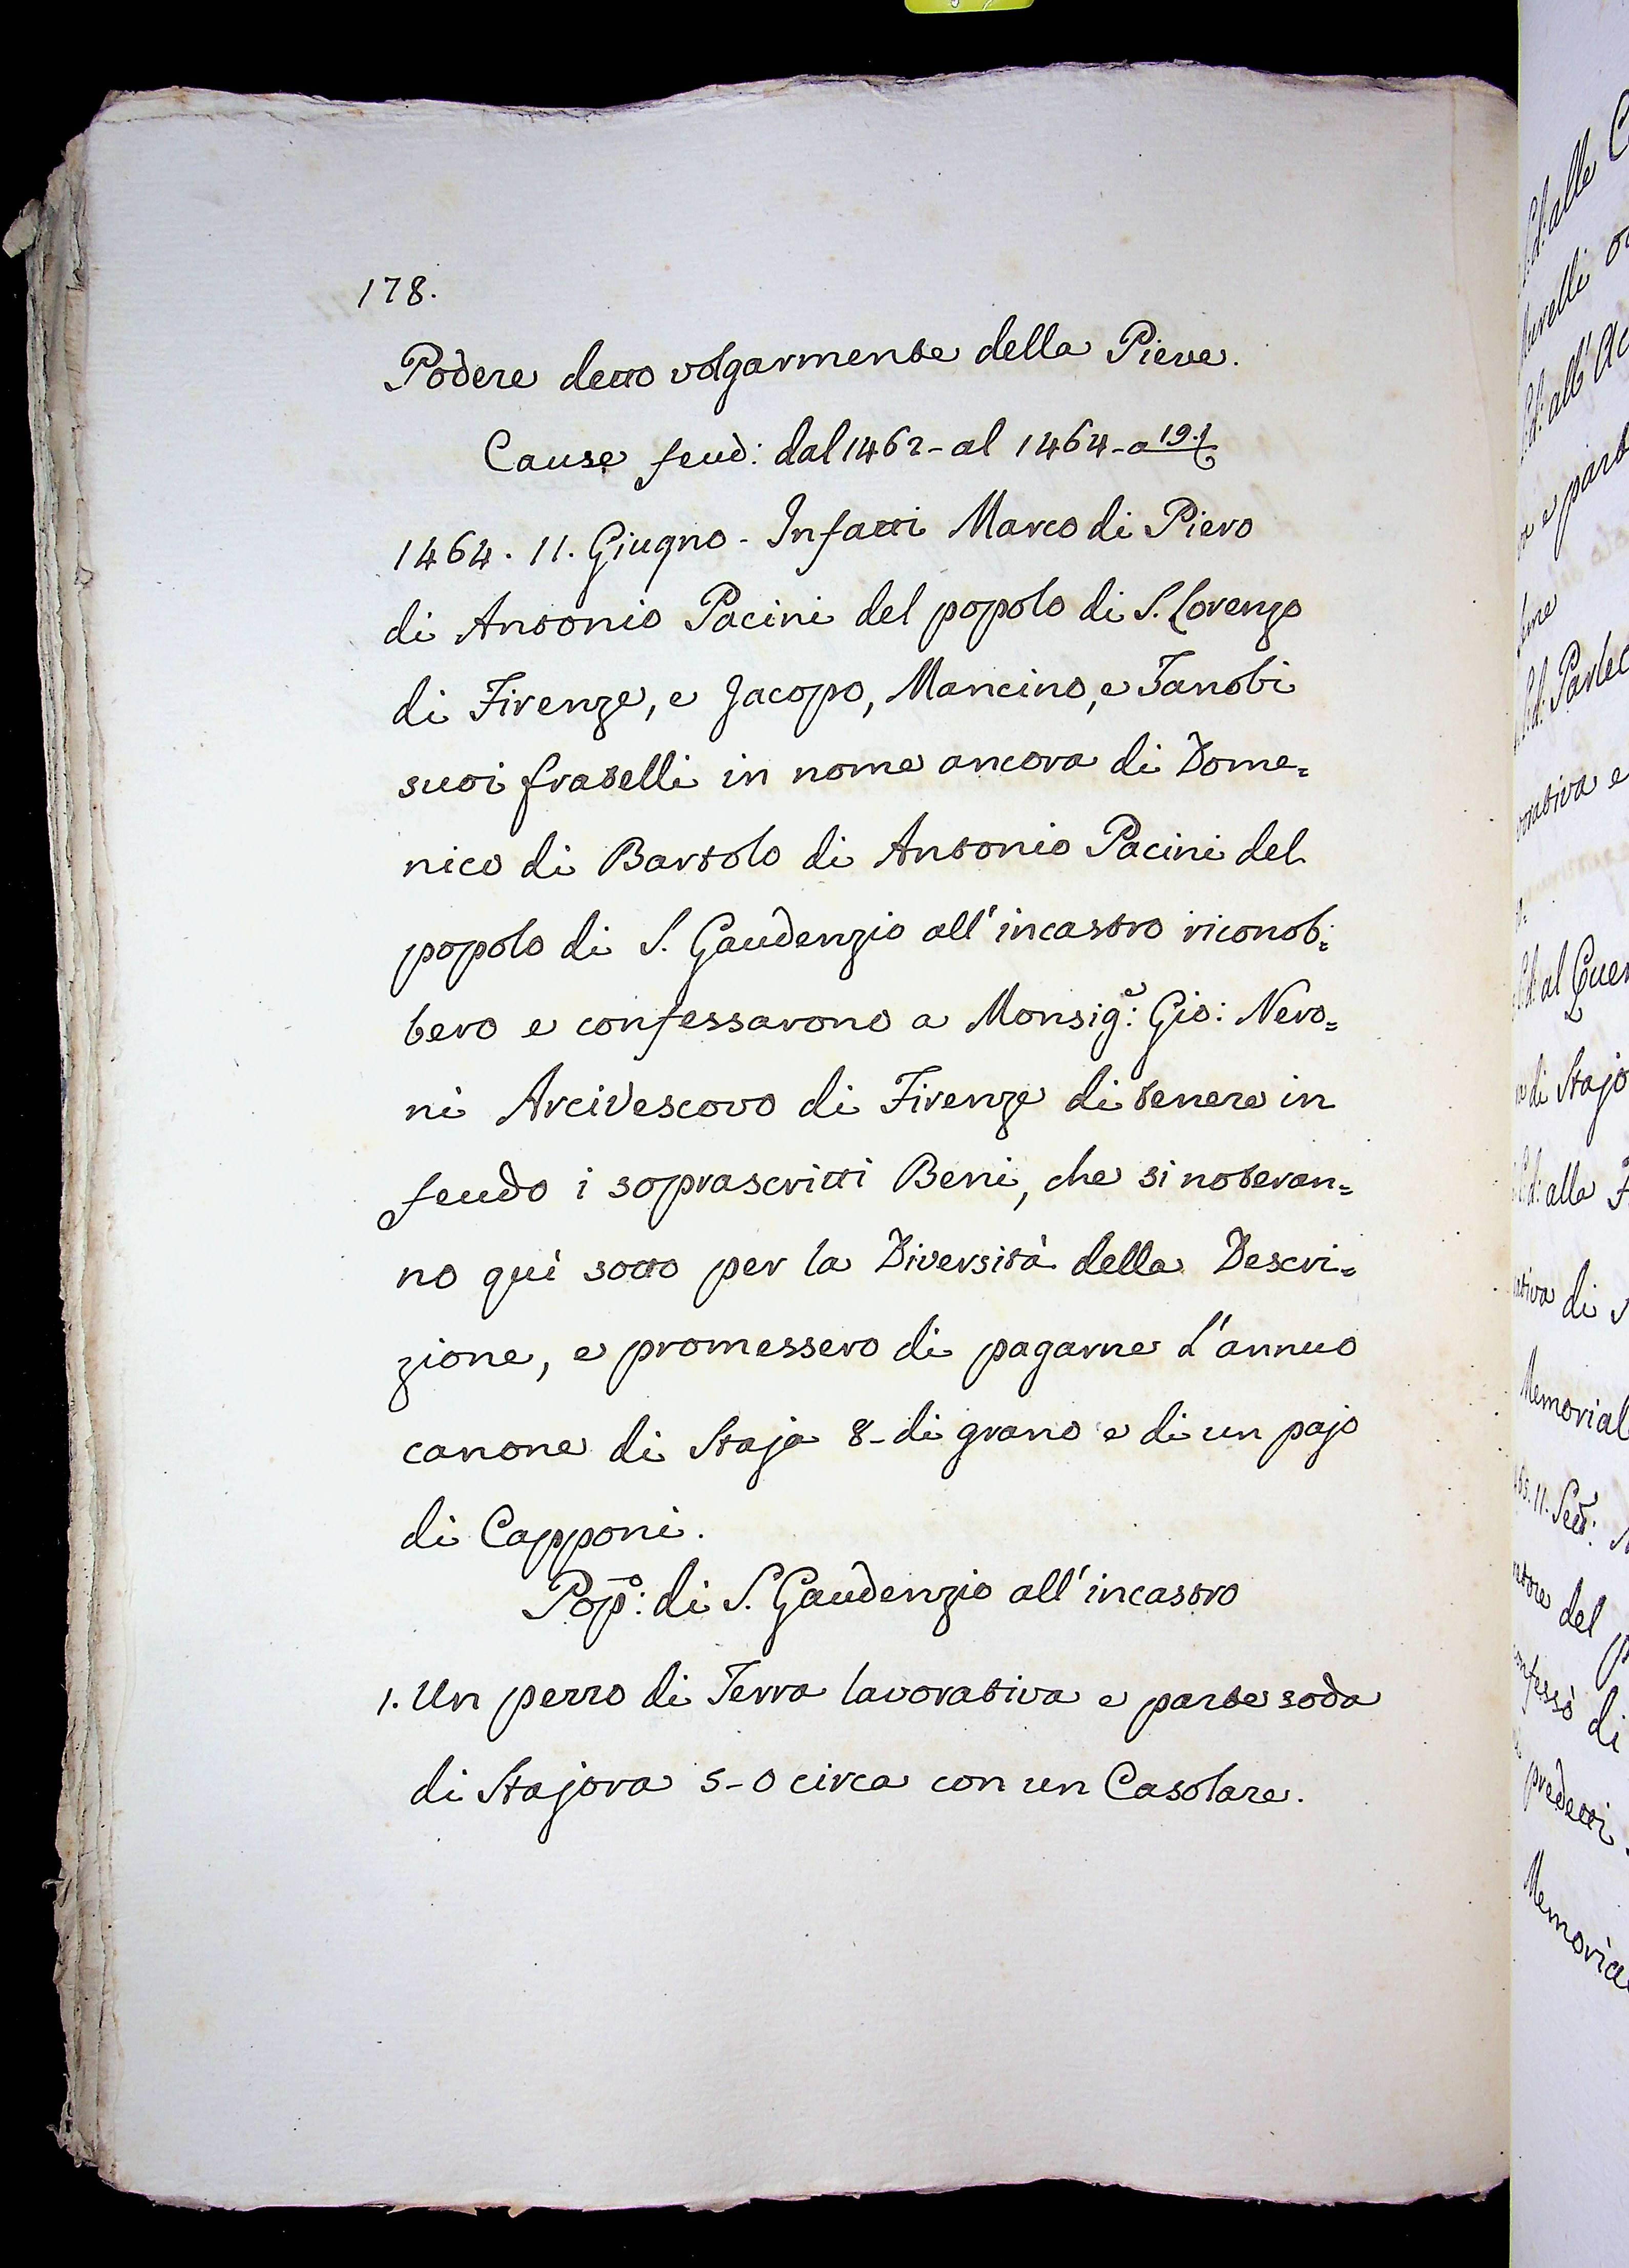 178.
Podere detto volgarmente della Pieve.
Cause feud: dal 1462 - al 1464 - a 19.
1464. 11. Giugno - Infatti Marco di Piero
di Antonio Pacini del popolo di S. Lorenzo
di Firenze, e Jacopo, Mancino, e Zanobi
suoi fratelli in nome ancora di Dome=
nico di Bartolo di Antonio Pacini del
popolo di S. Gaudenzio all'incastro riconob=
bero e confessarono a Monsig.e: Gio: Nero=
ni Arcivescovo di Firenze di tenere in
feudo i soprascritti Beni, che si noteran=
no quì sotto per la Diversità della Descri=
zione, e promessero di pagarne l'annuo
canone di Staja 8 - di grano e di un pajo
di Capponi.
Pop.o: di S. Gaudenzio all'incastro
1. Un pezzo di Terra lavorativa e parte soda
di Stajora 5 - 0 circa con un Casolare.